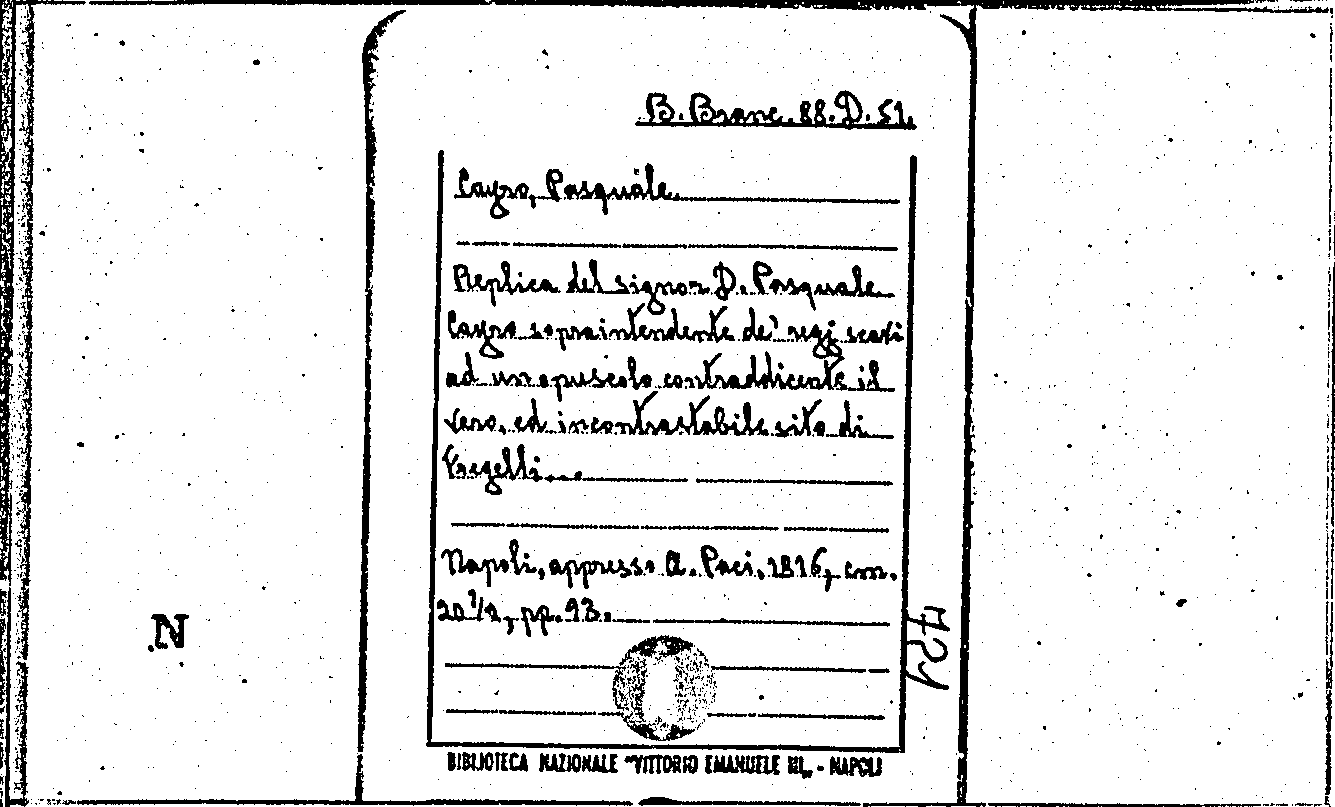 B. Branc. 88. D. 51.
Cayro, Pasquale
Replica del signor D. Pasquale
Cayro sopraintendente de' regj scavi
ad un opuscolo contraddicente il
vero, ed incontrastabile sito di
Fregelli...
Napoli, appresso A. Paci, 1816, cm.
20 1/2, pp. 93.
N
BIBLIOTECA NAZIONALE "VITTORIO EMANUELE III„ - NAPOLI